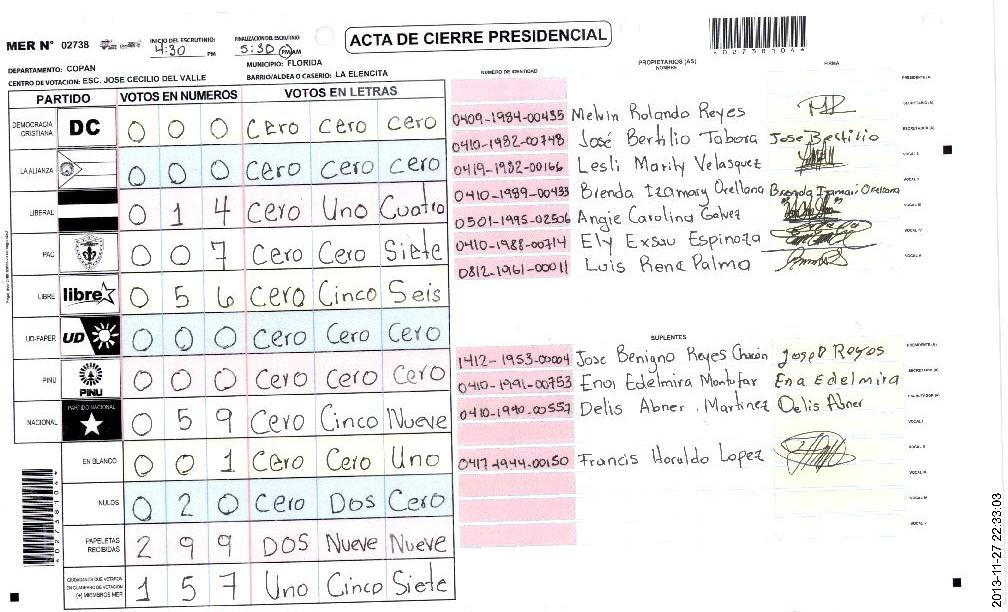 MER N° 02738
INICIO DEL ESCRUTINIO:
4:30 PM
FINALIZACION DEL ESCRUTINIO
5:30 PM AM
ACTA DE CIERRE PRESIDENCIAL
DEPARTAMENTO: COPAN
MUNICIPIO: FLORIDA
CENTRO DE VOTACION: ESC. JOSE CECILIO DEL VALLE
BARRIO/ALDEA O CASERIO: LA ELENCITA
PARTIDO VOTOS EN NUMEROS VOTOS EN LETRAS
DEMOCRACIA CRISTIANA DC 0 0 0 Cero Cero Cero
LA ALIANZA 0 0 0 Cero Cero Cero
LIBERAL 0 1 4 Cero Uno Cuatro
PAC 0 0 7 Cero Cero Siete
LIBRE libre 0 5 6 Cero Cinco Seis
UD-FAPER UD 0 0 0 Cero Cero Cero
PINU PINU 0 0 0 Cero Cero Cero
NACIONAL PARTIDO NACIONAL 0 5 9 Cero Cinco Nueve
EN BLANCO 0 0 1 Cero Cero Uno
NULOS 0 2 0 Cero Dos Cero
PAPELETAS RECIBIDAS 2 9 9 DOS Nueve Nueve
CIUDADANOS QUE VOTARON EN CUADERNO DE VOTACION (+) MIEMBROS MER 1 5 7 Uno Cinco Siete
NUMERO DE IDENTIDAD PROPIETARIOS (AS) NOMBRE FIRMA
PRESIDENTE (A)
0409-1984-00435 Melvin Rolando Reyes
SECRETARIO (A)
0410-1982-00748 José Bertilio Tabora Jose Bertilio
ESCRUTADOR (A)
0419-1982-00166 Lesli Marily Velasquez
VOCAL I
0410-1989-00433 Brenda Izamary Orellana Brenda Izamari Orellana
0501-1995-02506 Angie Carolina Galvez
VOCAL III
0410-1988-00714 Ely Exsau Espinoza
VOCAL IV
0812-1961-00011 Luis Rene Palma
VOCAL V
SUPLENTES
PRESIDENTE (A)
1412-1953-00004 Jose Benigno Reyes Chacón Joseb Reyos
SECRETARIO (A)
0410-1991-00753 Ena Edelmira Montufar Ena Edelmira
0410-1990-00557 Delis Abner Martinez Delis Abner
VOCAL I
VOCAL II
0417-1944-00150 Francis Horaldo Lopez
VOCAL III
VOCAL IV
VOCAL V
2013-11-27 22:33:03